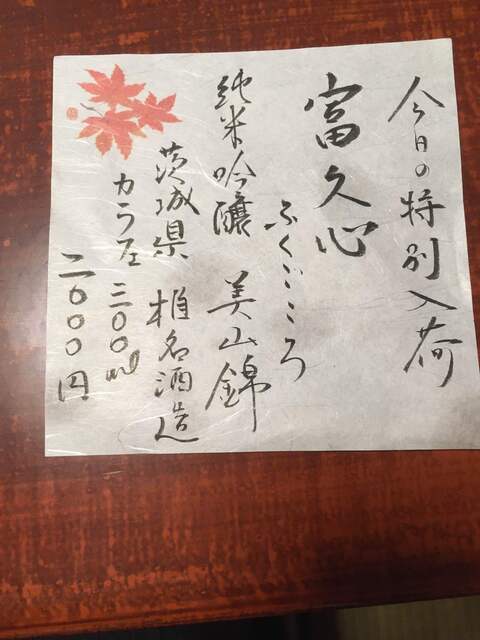 今日の特別入荷
富久心
ふくごころ
純米吟醸 美山錦
茨城県 椎名酒造
カラフェ 三〇〇ml
二〇〇〇円